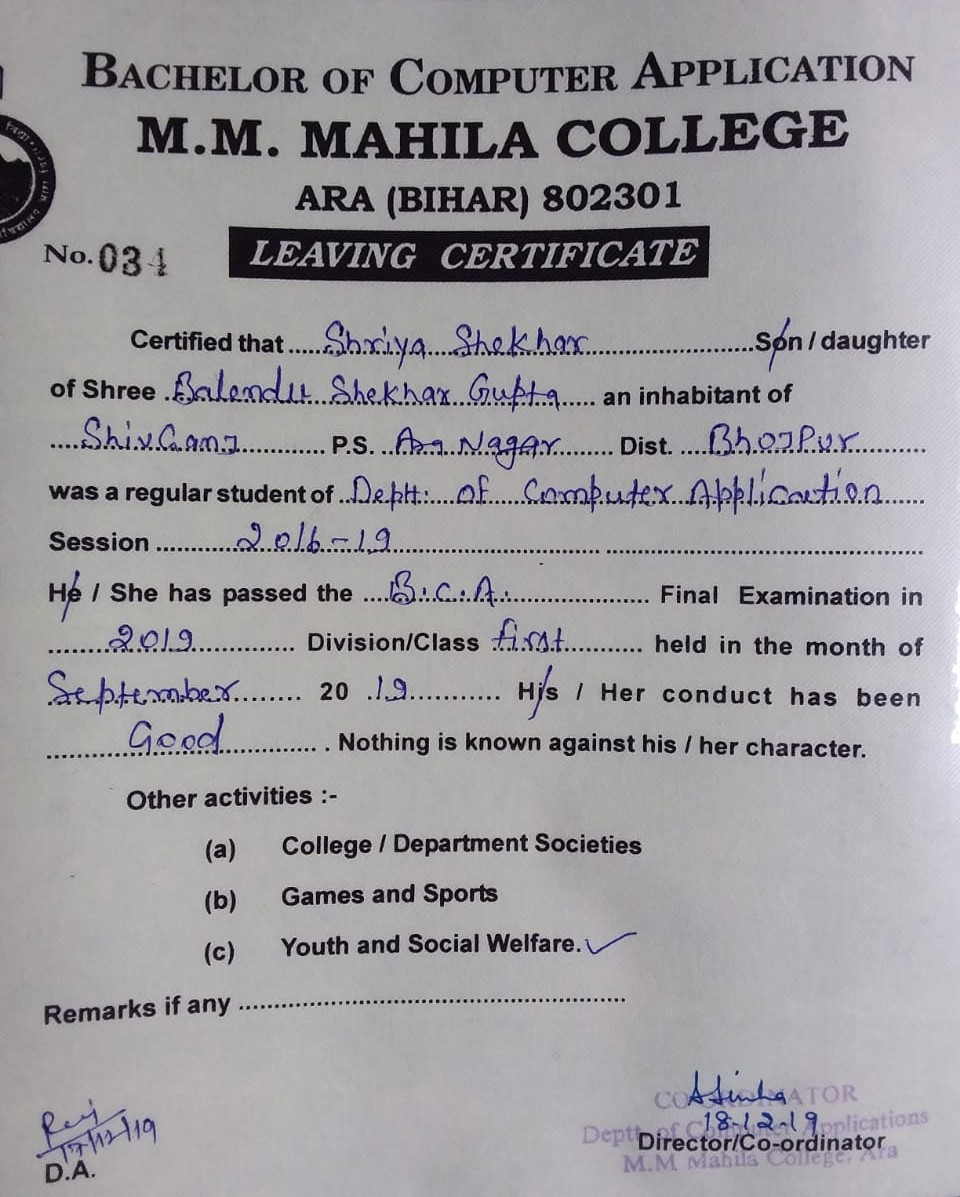 BACHELOR OF COMPUTER APPLICATION
M.M. MAHILA COLLEGE
ARA (BIHAR) 802301
No. 034
LEAVING CERTIFICATE
Certified that Shriya Shekhar Son / daughter
of Shree Balendu Shekhar Gupta an inhabitant of
ShivGanj P.S. Ara Nagar Dist. Bhojpur
was a regular student of Deptt: of Computer Application
Session 2016-19
He / She has passed the B.C.A. Final Examination in
2019 Division/Class first held in the month of
September 20 19 His / Her conduct has been
Good . Nothing is known against his / her character.
Other activities :-
(a) College / Department Societies
(b) Games and Sports
(c) Youth and Social Welfare.
Remarks if any
COORDINATOR
ASinha
18-12-19
Deptt. of Computer Applications
Director/Co-ordinator
M.M Mahila College, Ara
17/12/19
D.A.